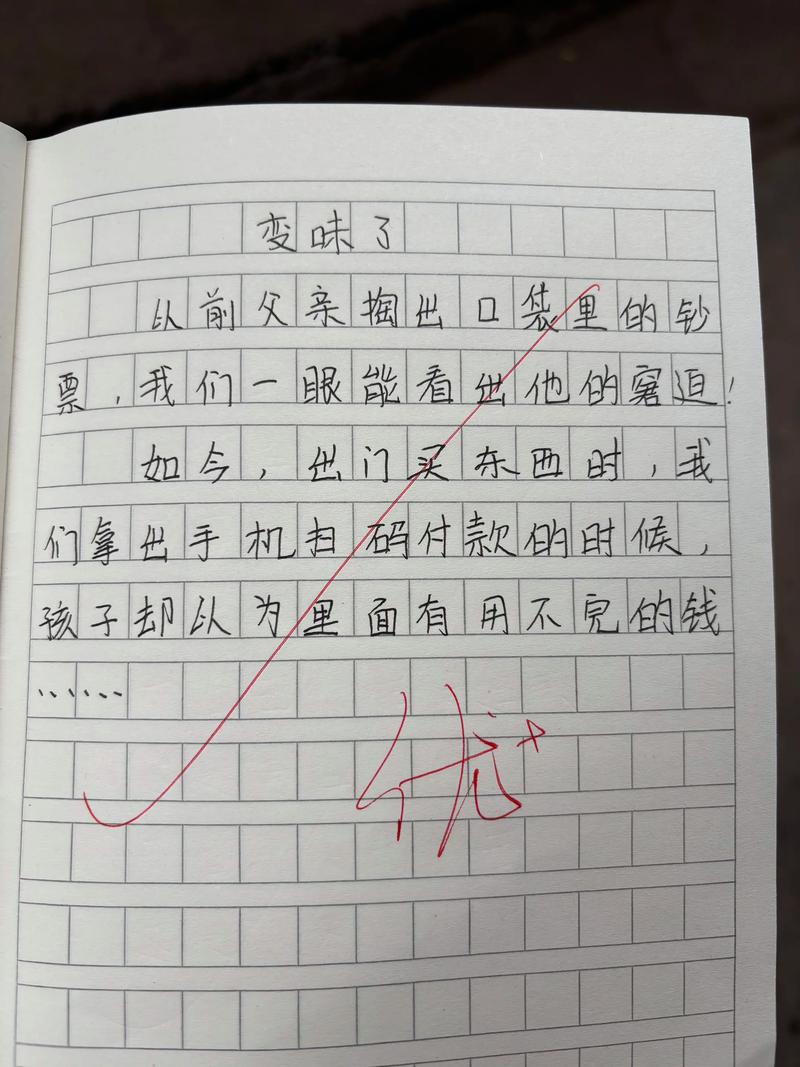 变味了
以前父亲掏出口袋里的钞
票，我们一眼能看出他的窘迫！
如今，出门买东西时，我
们拿出手机扫码付款的时候，
孩子却以为里面有用不完的钱
……
优+